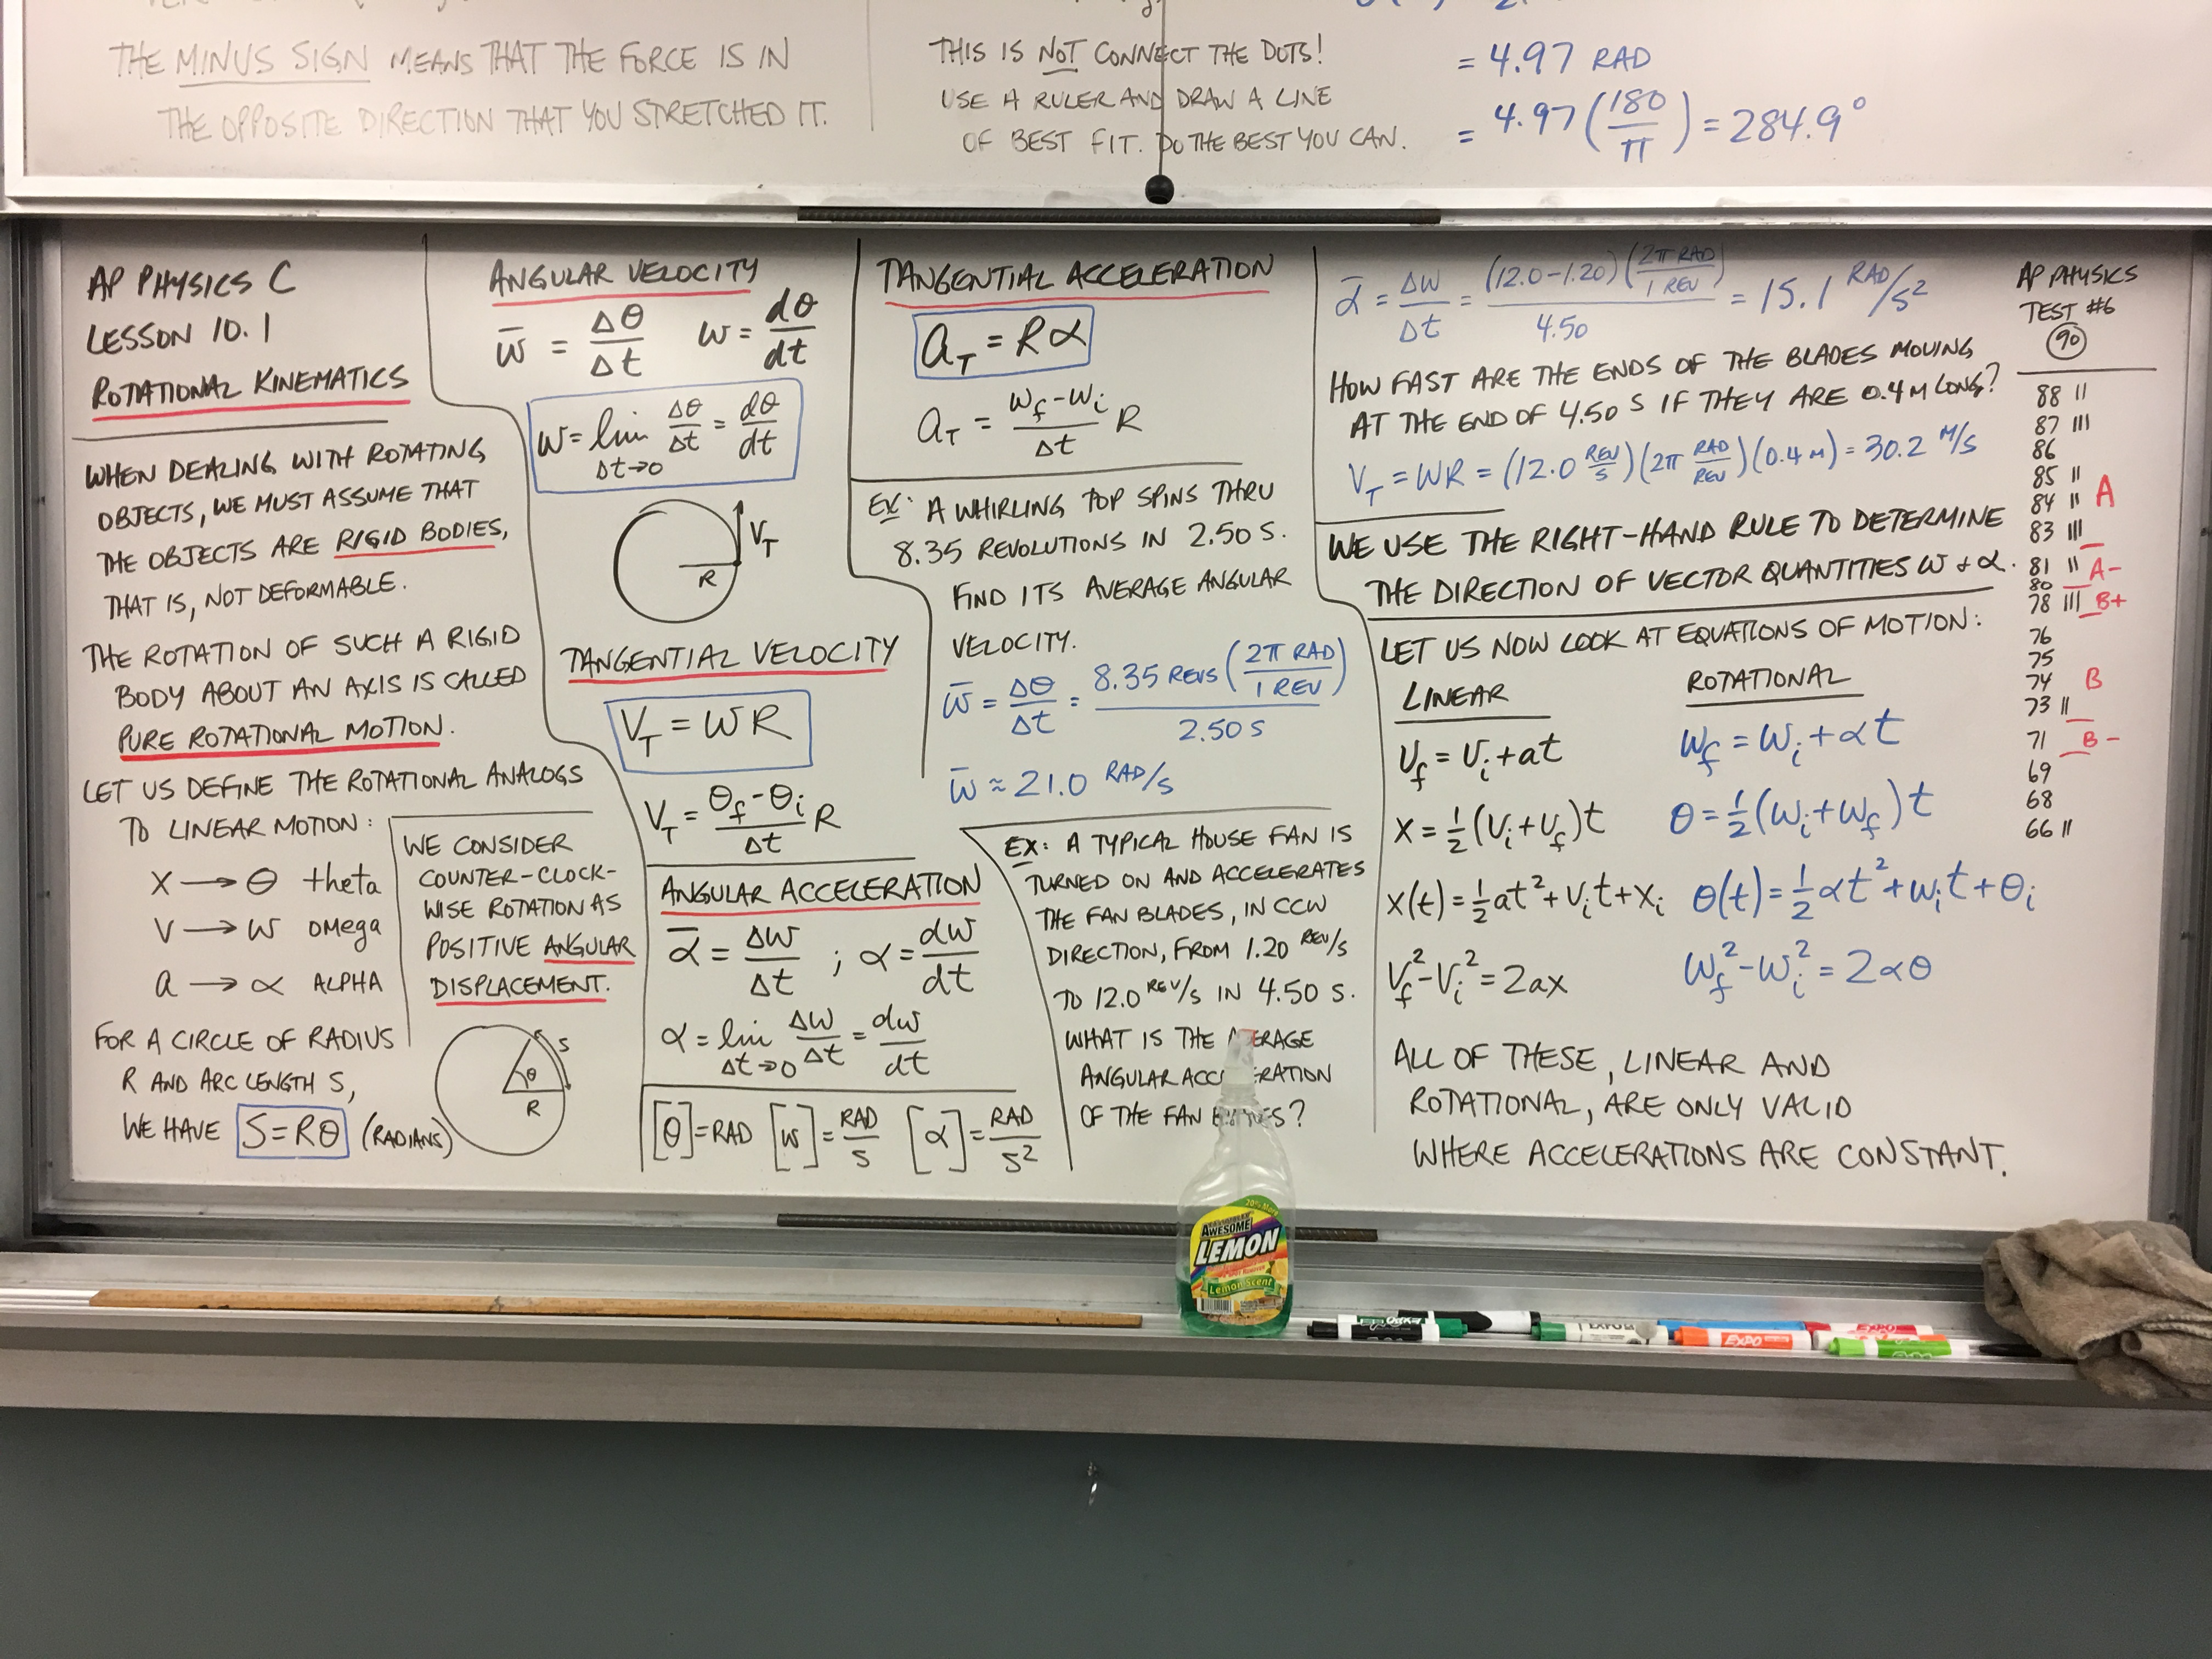 THE MINUS SIGN MEANS THAT THE FORCE IS IN
THE OPPOSITE DIRECTION THAT YOU STRETCHED IT.
THIS IS NOT CONNECT THE DOTS!
USE A RULER AND DRAW A LINE
OF BEST FIT. DO THE BEST YOU CAN.
= 4.97 RAD
= 4.97 (180/π) = 284.9°
AP PHYSICS C
LESSON 10.1
ROTATIONAL KINEMATICS
WHEN DEALING WITH ROTATING
OBJECTS, WE MUST ASSUME THAT
THE OBJECTS ARE RIGID BODIES,
THAT IS, NOT DEFORMABLE.
THE ROTATION OF SUCH A RIGID
BODY ABOUT AN AXIS IS CALLED
PURE ROTATIONAL MOTION.
LET US DEFINE THE ROTATIONAL ANALOGS
TO LINEAR MOTION:
X → θ theta
V → ω omega
a → α ALPHA
FOR A CIRCLE OF RADIUS
R AND ARC LENGTH S,
WE HAVE S=Rθ (RADIANS)
WE CONSIDER
COUNTER-CLOCK-
WISE ROTATION AS
POSITIVE ANGULAR
DISPLACEMENT.
S
θ
R
ANGULAR VELOCITY
ω̄ = Δθ/Δt ω = dθ/dt
ω = lim Δt→0 Δθ/Δt = dθ/dt
V_T
R
TANGENTIAL VELOCITY
V_T = ωR
V_T = (θ_f - θ_i)/Δt R
ANGULAR ACCELERATION
ᾱ = Δω/Δt ; α = dω/dt
α = lim Δt→0 Δω/Δt = dω/dt
[θ]=RAD [ω]=RAD/S [α]=RAD/S²
TANGENTIAL ACCELERATION
a_T = Rα
a_T = (ω_f - ω_i)/Δt R
EX: A WHIRLING TOP SPINS THRU
8.35 REVOLUTIONS IN 2.50 S.
FIND ITS AVERAGE ANGULAR
VELOCITY.
ω̄ = Δθ/Δt = 8.35 REVS (2π RAD/1 REV)/2.50 S
ω̄ ≈ 21.0 RAD/S
EX: A TYPICAL HOUSE FAN IS
TURNED ON AND ACCELERATES
THE FAN BLADES, IN CCW
DIRECTION, FROM 1.20 REV/S
TO 12.0 REV/S IN 4.50 S.
WHAT IS THE AVERAGE
ANGULAR ACCELERATION
OF THE FAN BLADES?
ᾱ = Δω/Δt = (12.0-1.20)(2π RAD/1 REV)/4.50 = 15.1 RAD/S²
HOW FAST ARE THE ENDS OF THE BLADES MOVING
AT THE END OF 4.50 S IF THEY ARE 0.4 M LONG?
V_T = ωR = (12.0 REV/S)(2π RAD/REV)(0.4 M) = 30.2 M/S
WE USE THE RIGHT-HAND RULE TO DETERMINE
THE DIRECTION OF VECTOR QUANTITIES ω + α.
LET US NOW LOOK AT EQUATIONS OF MOTION:
LINEAR ROTATIONAL
V_f = V_i + at ω_f = ω_i + αt
X = ½(V_i + V_f)t θ = ½(ω_i + ω_f)t
X(t) = ½at² + V_i t + X_i θ(t) = ½αt² + ω_i t + θ_i
V_f² - V_i² = 2ax ω_f² - ω_i² = 2αθ
ALL OF THESE, LINEAR AND
ROTATIONAL, ARE ONLY VALID
WHERE ACCELERATIONS ARE CONSTANT.
AP PHYSICS
TEST #6
90
88 ||
87 |||
86
85 ||
84 || A
83 |||
81 || A-
80
78 ||| B+
76
75
74 B
73 ||
71 B-
69
68
66 ||
20% More
AWESOME
LEMON
Lemon Scent
EXPO
EXPO
EXPO